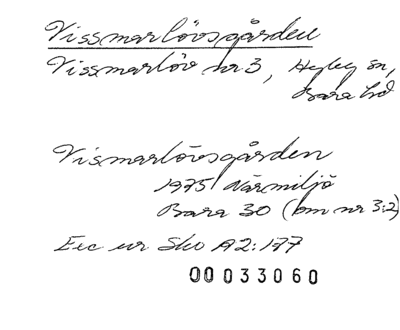 Vissmarlövsgården
Vissmarlöv nr 3, Hyby sn,
Bara hd
Vismarlövsgården
1975 Närmiljö
Bara 30 (om nr 3:2)
Exc ur Skv A2:177
00033060